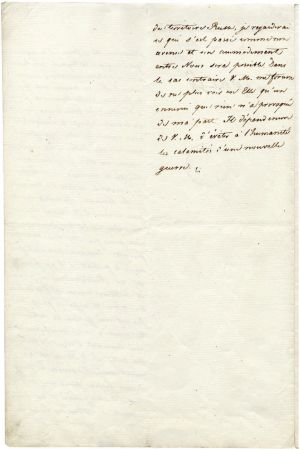 du territoire Russe, je regarderai
ce qui s'est passé comme non
avenu et un accommodement,
entre Nous sera possible. Dans
le cas contraire V. M. me forcera
de ne plus voir en Elle qu'un
ennemi que rien n'a provoqué
de ma part. Il dépend encore
de V. M. d'éviter à l'humanité
les calamités d'une nouvelle
guerre.